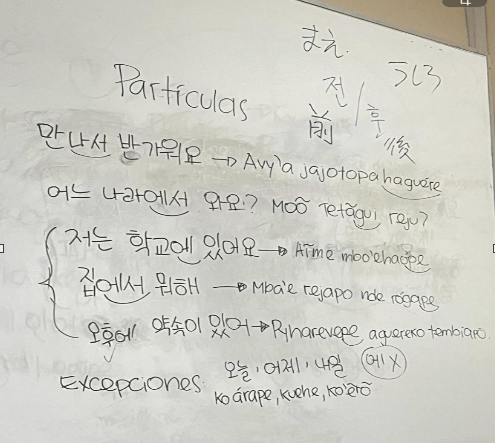 まえ.
Partículas
전/후
前 後
만나서 반가워요 → Avy'a jajotopa haguére
어느 나라에서 와요? Moõ Tetãgui reju?
저는 학교에 있어요 → Aĩme mbo'ehaópe
집에서 뭐해 → Mba'e rejapo nde rógape
오후에 약속이 있어 → Pyharevepe aguereko tembiapo
Excepciones: 오늘, 어제, 내일 (에 X)
ko árape, kuehe, ko'ẽrõ